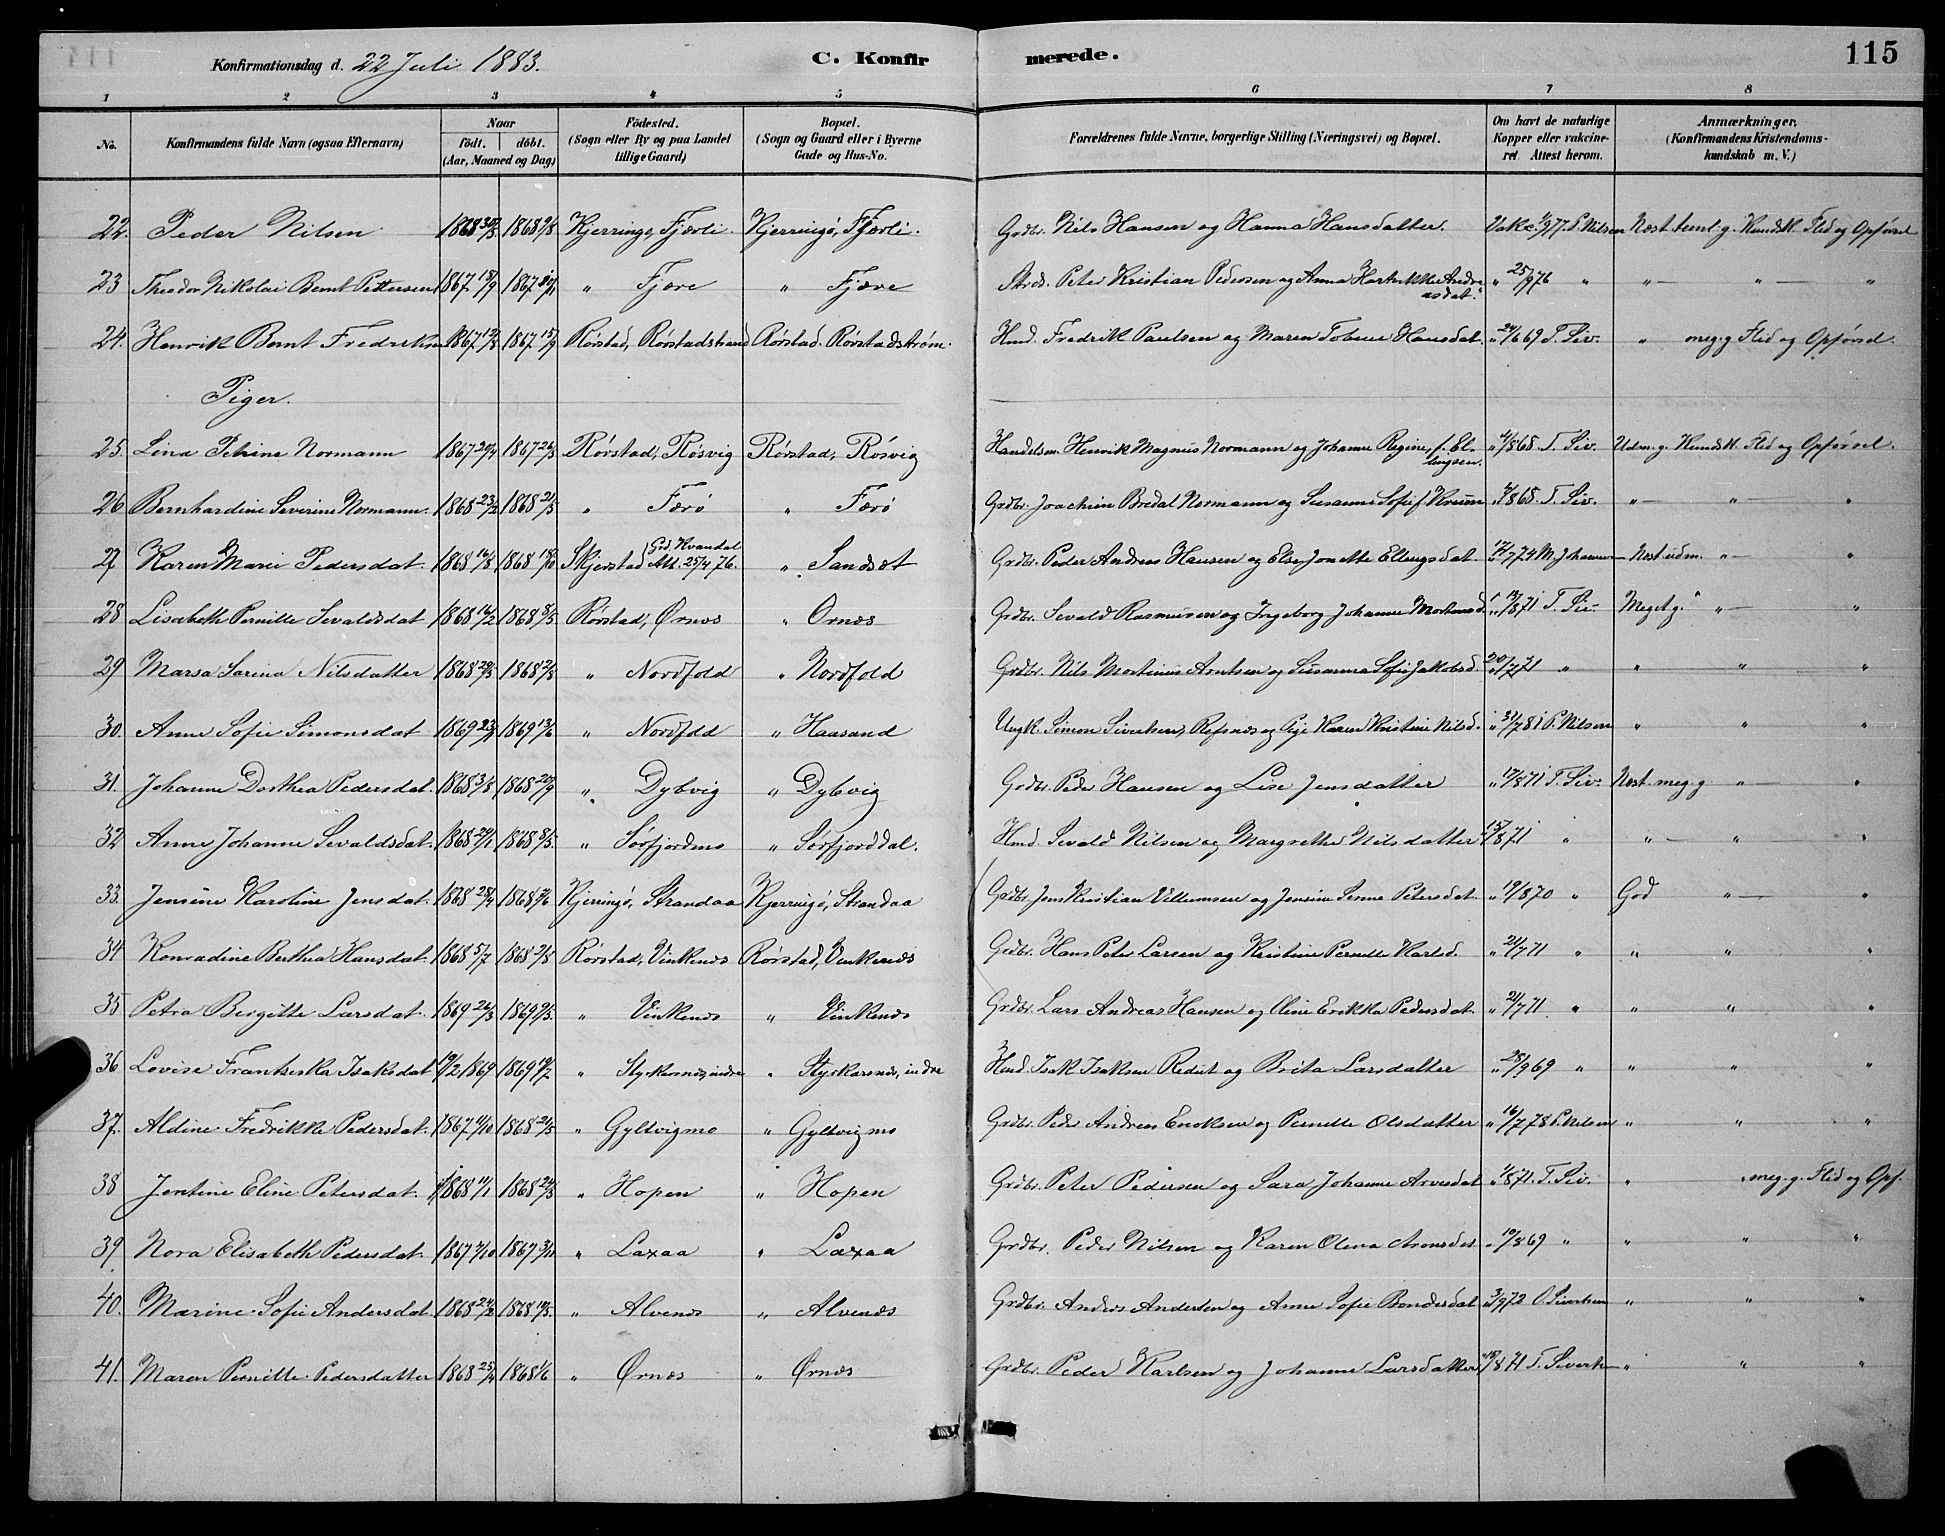 Konfirmationsdag d. 22 Juli 1883. C. Konfirmerede. 115
1 2 3 4 5 6 7 8
No. Konfirmandens fulde Navn (ogsaa Efternavn) Naar födt. döbt. (Aar, Maaned og Dag) Födested. (Sogn eller By og paa Landet tillige Gaard) Bopæl. (Sogn og Gaard eller i Byerne Gade og Hus-No. Forældrenes fulde Navne, borgerlige Stilling (Næringsvei) og Bopæl. Om havt de naturlige Kopper eller vakcineret Attest herom. Anmærkninger. (Konfirmandens Kristendomskundskab m. V.)
22. Peder Nilsen 1868 30/3 1868 Kjerringø, Fjærli. Kjerringø, Fjærli. Grdbr. Nils Hansen og Hanna Hansdatter. Vakc. 1/9 77. P. Nilsen Næst teml. g. Kundsk. Flid og Opførsel
23 Theodor Nikolai Bernt Pettersen 1867 18/9 1867 " Fjære " Fjære Peter Kristian Pedersen og Anna Andreasdat. " 25/9 76 " " — " — "
24. Henrik Bernt Fredriksen 1867 12/8 1867 15/9 Rørstad, Rørstadstrand Rørstad. Rørstadstrøm. Hmd. Fredrik Paulsen og Maren Tobine Hansdat. " 24/6 69 T. Siv. " meg. g Flid og Opførsel
Piger.
25. Lina Petrine Normann 1867 20/4 1867 26/5 Rørstad, Røsvig Rørstad, Røsvig Handelsm. Henrik Magnus Normann og Johanne Regine, f. Ellingsen. " 4/8 68. T. Siv. Udm. g. Kundsk. Flid og Opførsel.
26 Bernhardine Severine Normann. 1868 23/2 1868 21/5 " Færø " Færø Grdbr. Joachim Bredal Normann og Susanne Sofie f. " 4/8 68. T. Siv. " — " — "
27 Karen Marie Pedersdat 1868 16/8 1868 18/10 Skjerstad Grd. Kvandal Att. 25/4 76. " Sandsæt Grdbr. Peder Andreas Hansen og Else Jonette Ellingsdat " 17/7 74 M. Johansen Næst udm. " — "
28 Lisabeth Pernille Sevaldsdat 1868 16/2 1868 8/5 Rørstad, Ørnes " Ornæs Grdbr. Sevald Rasmussen og Ingeborg Johanne Mortensd. " 13/8 71 T. Siv. Meget g. " — "
29 Marsa Sarina Nilsdatter 1868 29/3 1868 " Nordfold " Nordfold Grdbr. Nils Martinus Arntsen og Susanna Sofie Jakobsd. " 20/7 71 " " " "
30. Anne Sofie Simonsdat 1869 1869 13/6 " Nordfold " Haasand Ungk. Simon Sivertsen, Refsnæs og Pige Karen Kristine Nilsd. " 31/7 81 P. Nilsen " " "
31. Johanne Dorthea Pedersdat 1868 3/8 1868 20/9 " Dybvig " Dybvig Grdbr. Peder Hansen og Lise Jensdatter " 17/8 71 T. Siv. Næst. meg. g. " — "
32 Anne Johanne Sevaldsdat. 1868 29/1 1868 8/5. " Sørfjordmo " Sørfjorddal. Hmd. Sevald Nilsen og Margrethe Nilsdatter " 15/8 71 " " — " "
33. Jensine Karoline Jensdat. 1868 28/4 1868 Kjerringø, Strandaa Kjerringø, Strandaa Grdbr. Jens Kristian Villumsen og Jensine Petersdat. " 19/8 70 " God " — "
34 Konradine Berthea Hansdat. 1868 5/7 1868 Rørstad, Vinkenæs Rørstad, Vinkenæs Grdbr. Hans Peter Larsen og Kristine Pernille Karlsd. " 21/7 71 " " " "
35 Petra Birgitte Larsdat. 1869 26/3 1869 9/5. " Vinkenæs " Vinkenæs Grdbr. Lars Andreas Hansen og Oline Erikka Pedersdat. " 21/7 71 " " " "
36 Lovise Frantsiska Isaksdat 19/2 1869 1869 " Styrkesnæs, indre " Styrkesnæs, indre Hmd Isak Isaksen og Brita Larsdatter " 28/9 69 " " " "
37. Aldine Fredrikke Pedersdat. 1867 11/10 1868 21/5 " Gyltvigmo " Gyltvigmo Grdbr. Peder Andreas Enoksen og Pernille Olsdatter " 16/7 78 P. Nilsen " " "
38 Jentine Eline Petersdat. 1868 11/1 1868 24/5 " Hopen " Hopen Grdbr. Peter Pedersen og Sara Johanne Arvesdat " 1/8 71. T. Siv. " " meg. g. Flid og Opf.
39 Nora Elisabeth Pedersdat. 1867 1867 3/11 " Laxaa " Laxaa Grdbr. Peder Nilsen og Karen Olena Aronsdat " 10/8 69 " " " "
40. Marine Sofie Andersdat. 1868 1868 10/5. " Alvenæs " Alvenæs Grdbr. Anders Andersen og Anne Sofie Bendesdat " 3/9 72 O. Sivertsen " " "
41. Maren Pernille Pedersdatter 1868 25/4 1868 1/6 " Ørnæs " Ørnæs Grdbr. Peder Karlsen og Johanne Larsdatter " 15/8 71 T. Sivertsen " " "